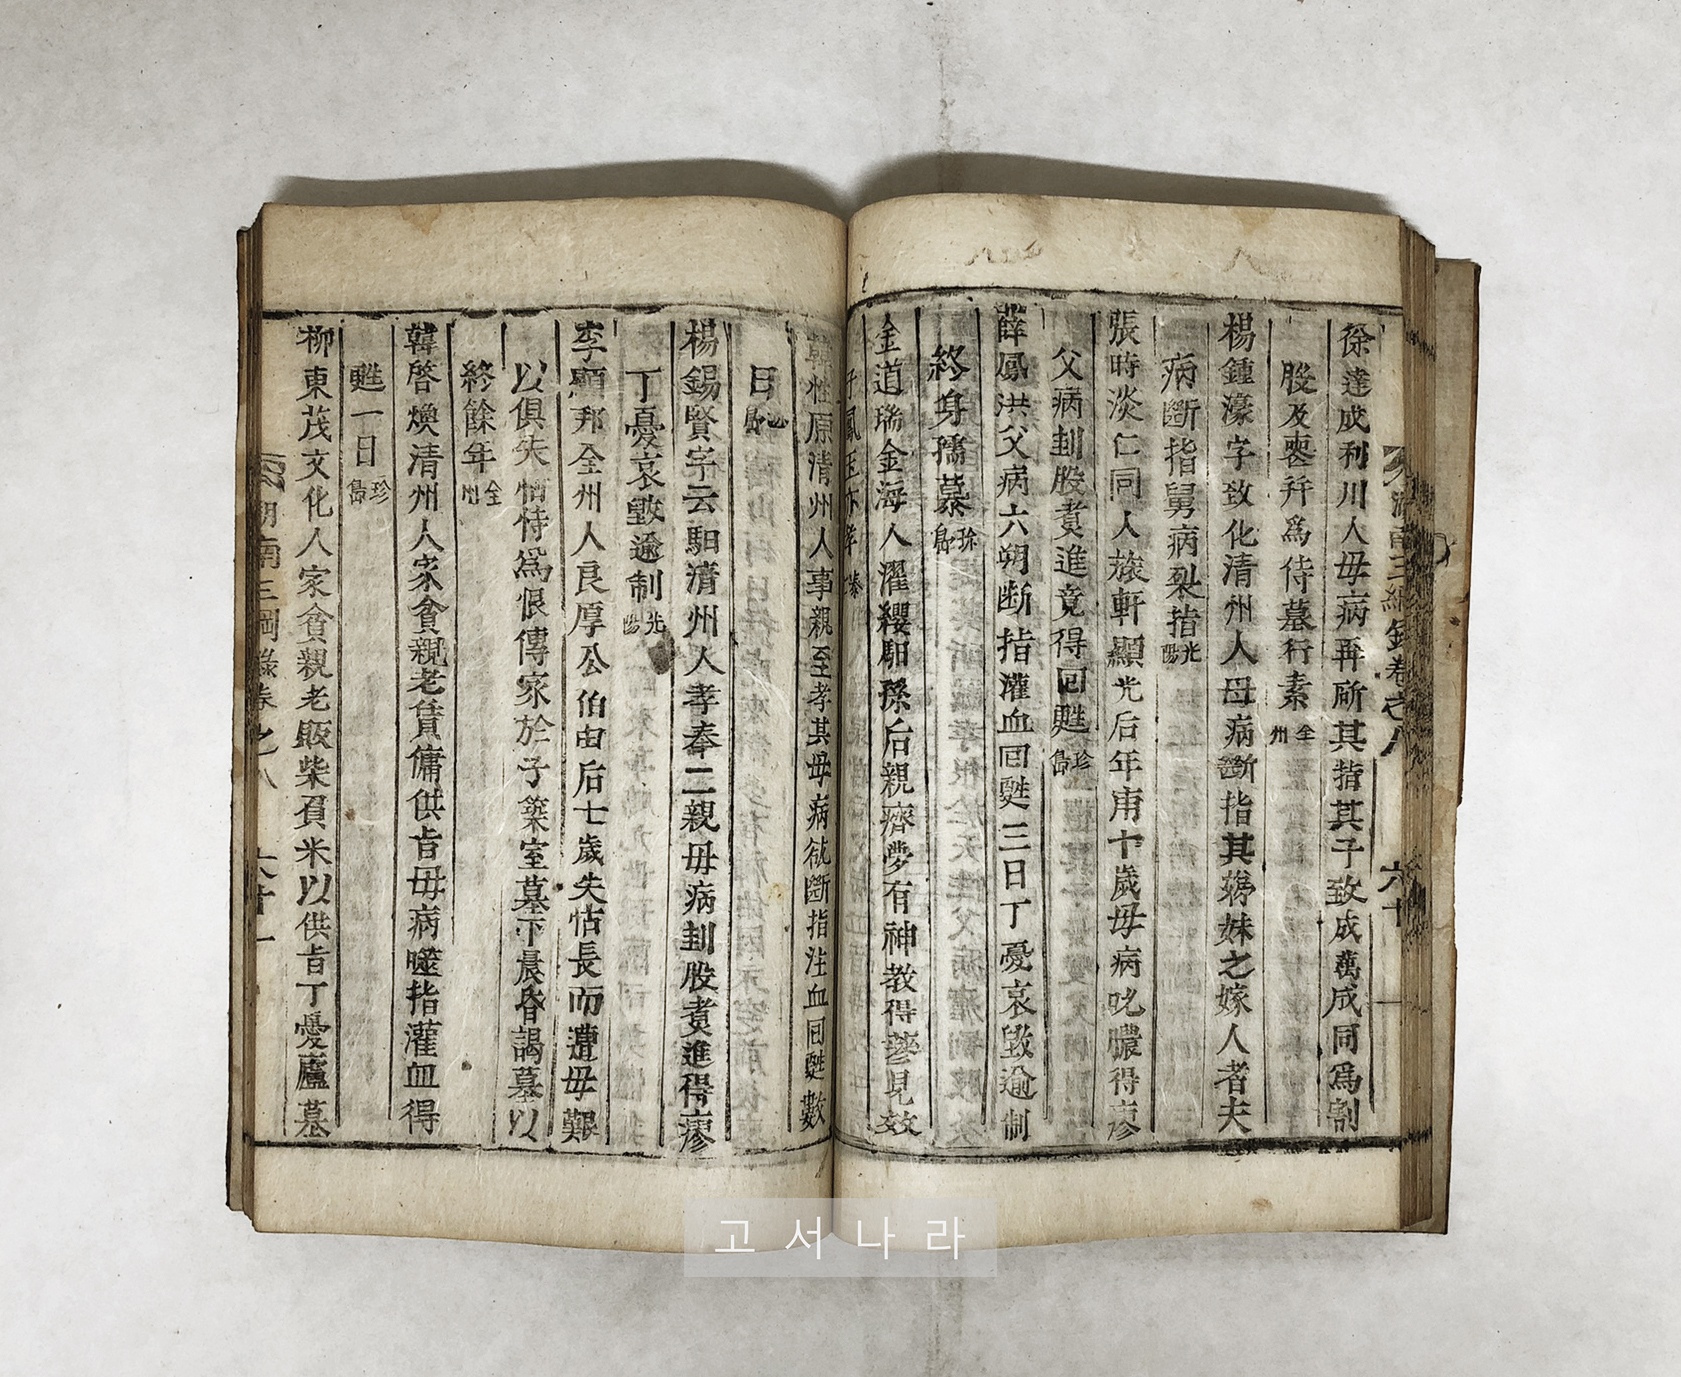 湖南三綱錄卷之八 六十
徐達成利川人母病再斫其指其子致成萬成同爲割
股及喪幷爲侍墓行素 全州
楊鍾濠字致化清州人母病斷指其娣妹之嫁人者夫
病斷指舅病裂指 光陽
張時淡仁同人旅軒顯光后年甫十歲母病吮膿得
父病刲股煮進竟得回甦 珍島
薛鳳洪父病六朔断指灌血回甦三日丁憂哀毁逾制
終身孺慕 珍島
金道瑞金海人濯纓馹孫后親癠夢有神教得蔘見效
子鳳玉亦孝
韓性原清州人事親至孝其母病欲斷指注血回甦數
日 島
楊錫賢字云馹清州人孝奉二親母病刲股煮進得瘳
丁憂哀毁逾制 光陽
李顯邦全州人良厚公伯由后七歲失怙長而遭母艱
以俱失怙恃爲恨傳家於子築室墓下晨昏謁墓以
終餘年 全州
韓啓煥清州人家貧親老賃傭供旨母病噬指灌血得
甦一日 珍島
柳東茂文化人家貧親老販柴負米以供旨丁憂廬墓
湖南三綱錄卷之八 六十一
고서나라